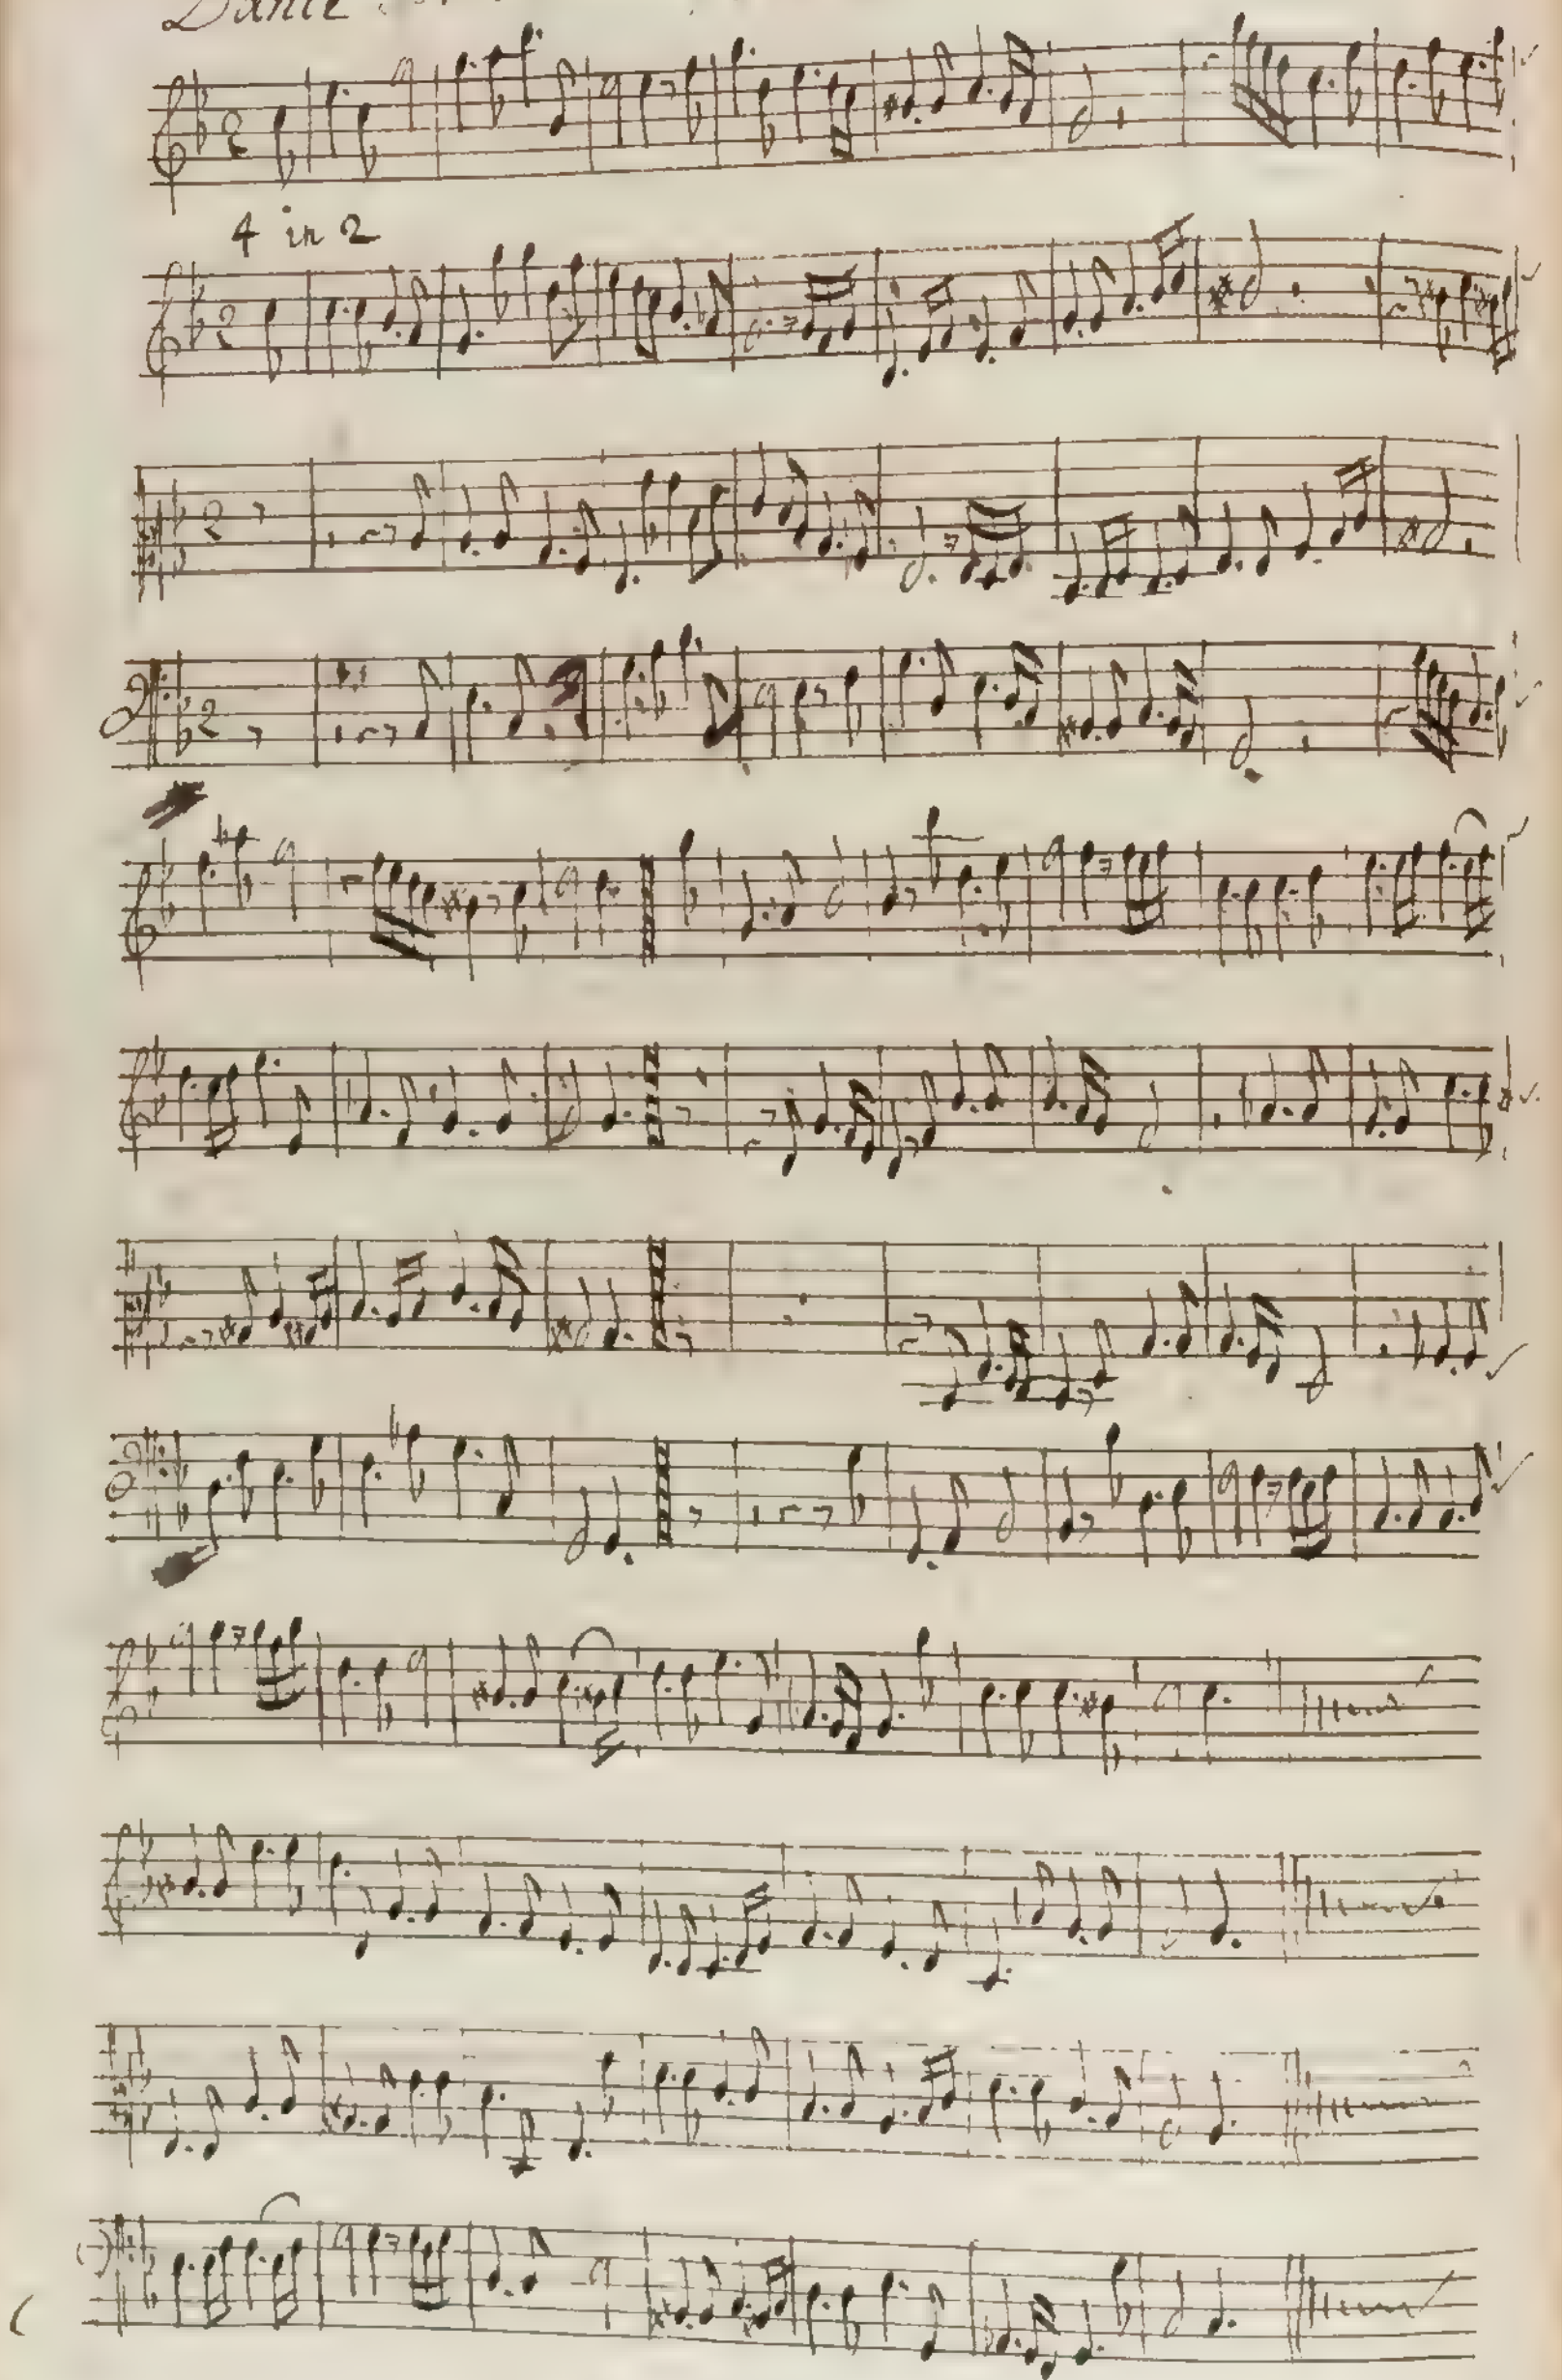 Dance
4 in 2